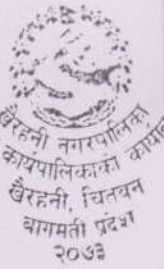 खैरहनी नगरपालिका
कार्यपालिकाको
खैरहनी, चितवन
बागमती प्रदेश
२०७३